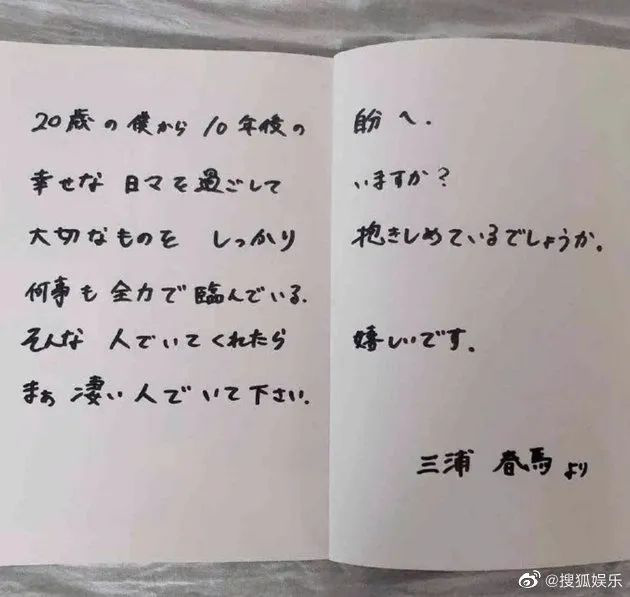 20歳の僕から 10年後の 自分へ.
幸せな 日々を過ごして いますか?
大切なものを しっかり 抱きしめているでしょうか。
何事も 全力で臨んでいる.
そんな 人でいてくれたら 嬉しいです.
まぁ 凄い人でいて下さい.
三浦 春馬 より
@搜狐娱乐